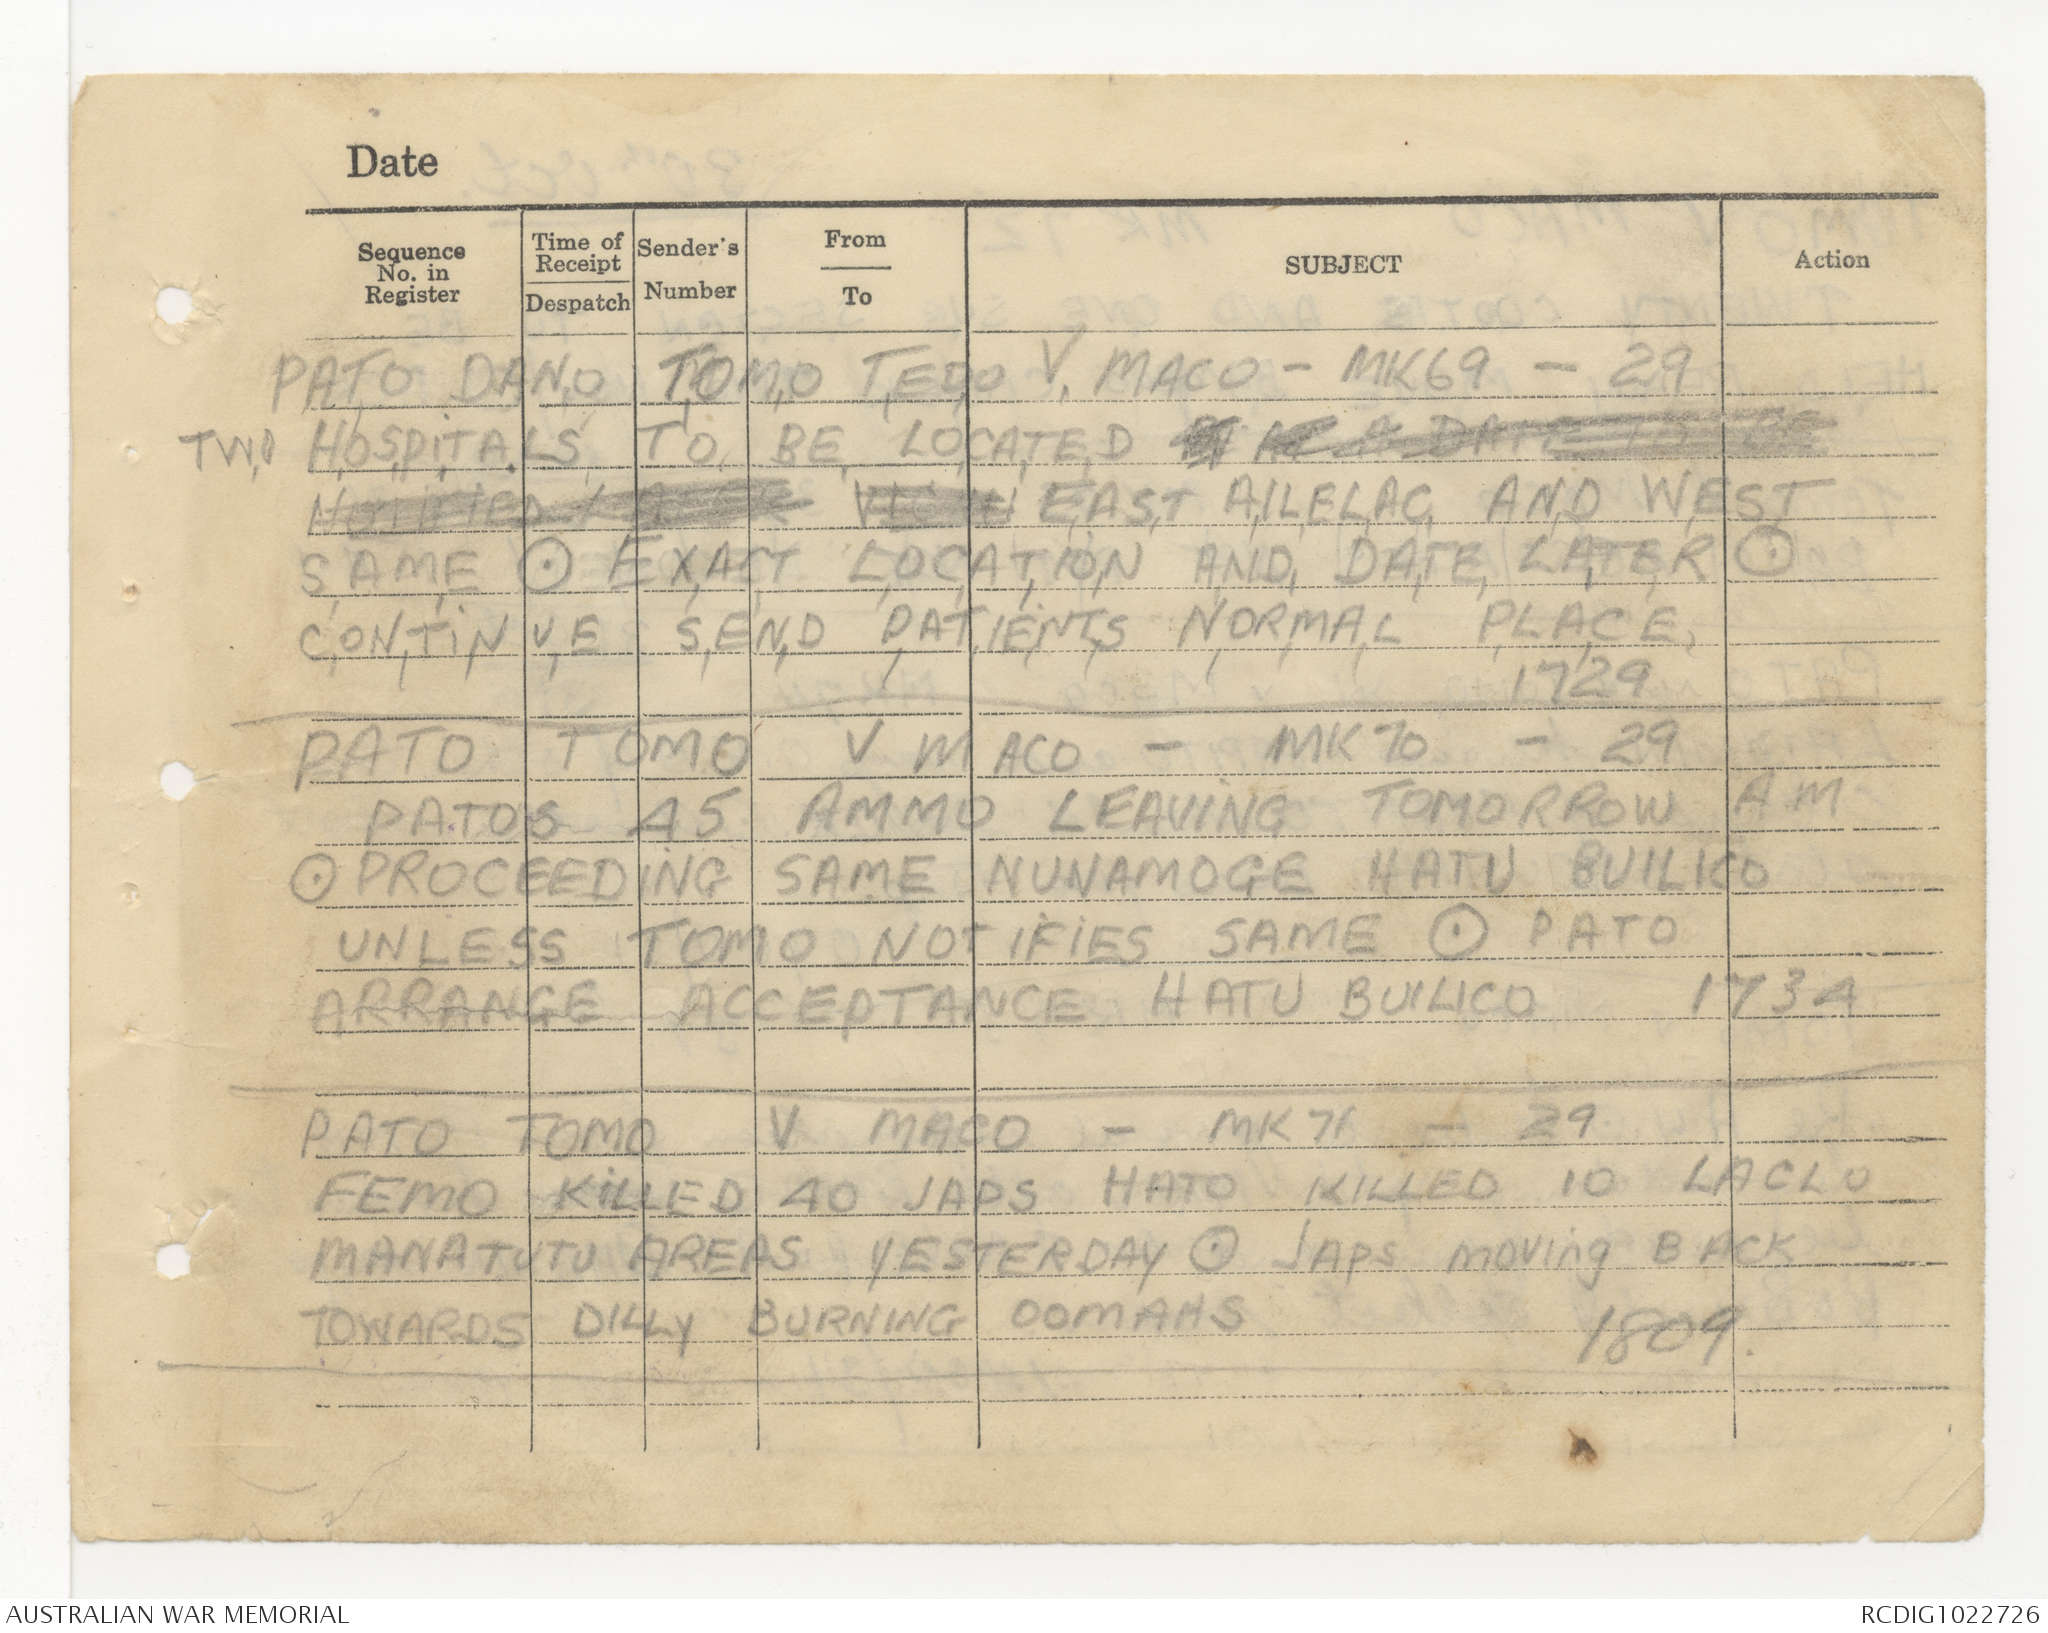 Date
Sequence No. in Register
Time of Receipt
Despatch
Sender's Number
From
To
SUBJECT
Action
PATO DANO TOMO TEDO V. MACO - MK69 - 29
TWO HOSPITALS TO BE LOCATED
EAST AILELAC AND WEST
SAME ⊙ EXACT LOCATION AND DATE LATER ⊙
CONTINUE SEND PATIENTS NORMAL PLACE,
1729
PATO TOMO V MACO - MK70 - 29
PATOS 45 AMMO LEAVING TOMORROW AM
⊙ PROCEEDING SAME NUNAMOGE HATU BUILICO
UNLESS TOMO NOTIFIES SAME ⊙ PATO
ARRANGE ACCEPTANCE HATU BUILICO 1734
PATO TOMO V MACO - MK71 - 29
FEMO KILLED 40 JAPS HATO KILLED 10 LACLO
MANATUTU AREAS YESTERDAY ⊙ JAPS MOVING BACK
TOWARDS DILLY BURNING OOMAHS 1809.
AUSTRALIAN WAR MEMORIAL
RCDIG1022726